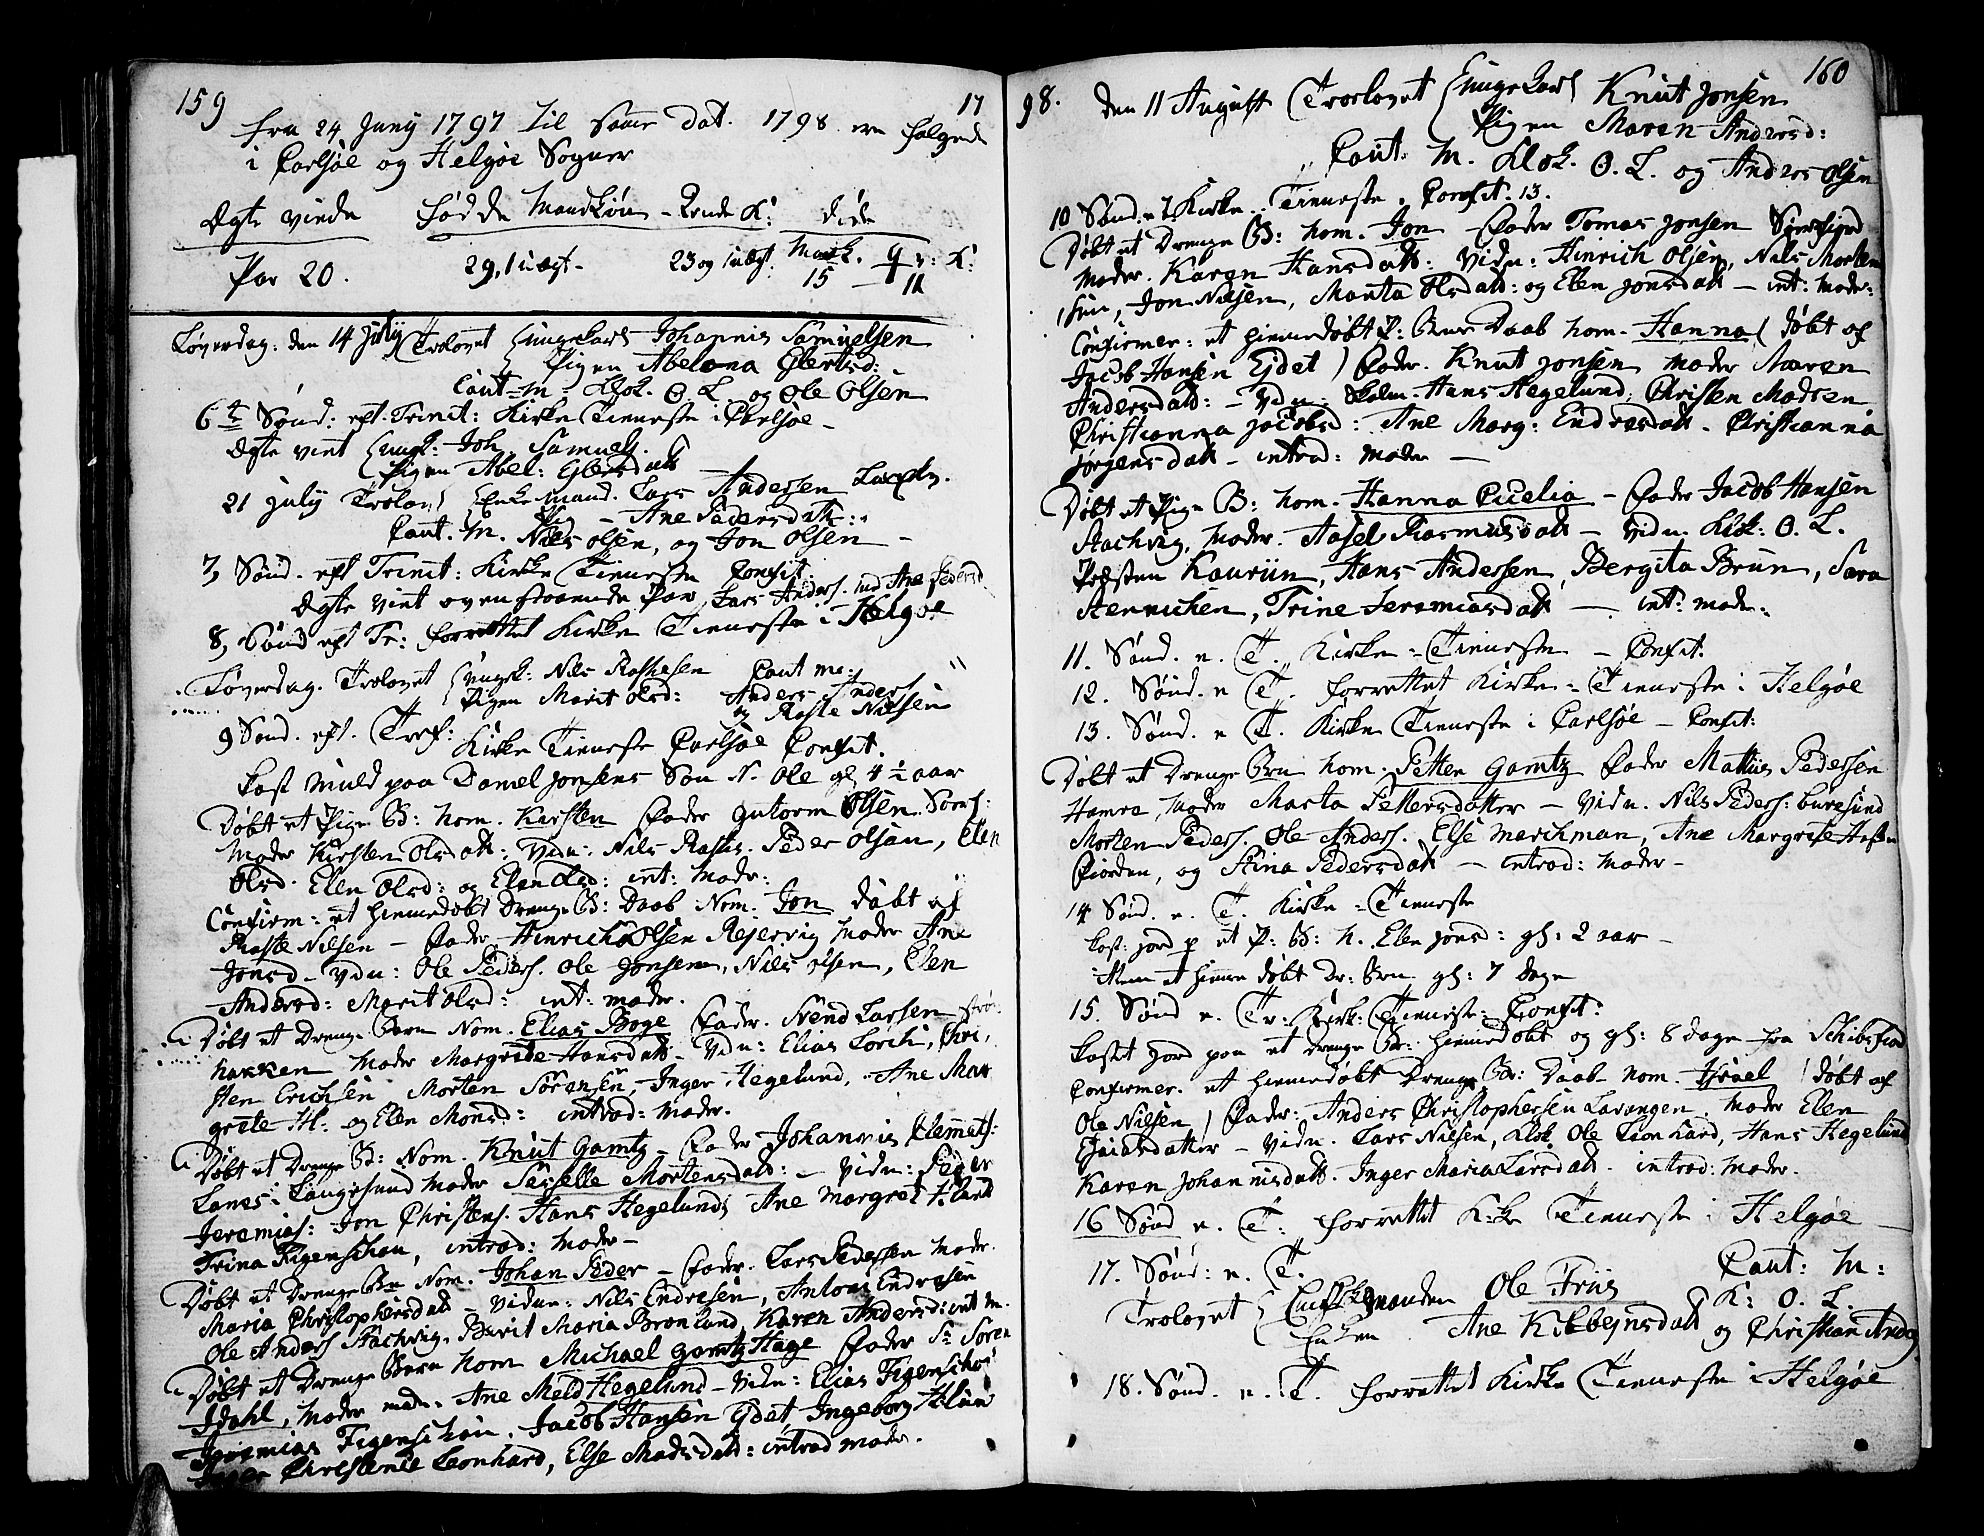 159
17
Fra 24 Juny 1797 til samme dat. 1798 ere følgende
i Carlsøe og Helgøe Sogner
Ægte viede Fødde Mandkøn - Qvinde K: døde
Par 20. 29, 1 uægt - 23 og 1 uægt. Mandk. 15 - Qv: K: 11
Løverdag: den 14 July Trolovet Ungekarl Johannis Samuelsen
Pigen Abelona Eilertsd:
Caut. m. Klok. O. L. og Ole Olsen
6te Sønd: eft. Trinit: Kirke Tieneste i Carlsøe -
Ægte viet Ungk: Joh. Samuels.
Pigen Abel: Eilersdatt
21 July Trolov Enkemand. Lars Andersen
Pig - Ane Pedersdatt:
Caut. M. Niels Olsen, og Jon Olsen -
7, Sønd. eft Trinit: Kirke Tieneste Confit.
Ægte viet ovenstaaende Par Lars Anders. med Ane Pedersd
8, Sønd eft Tr: forrettet Kirke Tieneste i Helgøe
Løverdag. Trolovet Ungk: Nils Rasmusen Caut me:
Pigen Marit Olsd: Anders Anders.
og Raste Nilsen
9 Sønd. eft. Tref: Kirke Tieneste Carlsøe Confit.
Kast Muld paa Daniel Jonsens Søn N. Ole gl 4 ½ aar
Døbt et Pige B: nom. Kirsten Fader Gutorm Olsen
Moder Kirsten Olsdatt: Vidn: Nils Raste. Peder Olsen, Elen
Olsd. Elen Olsd: og Elen Olsd: int: Moder:
Confirm: et hiemedøbt Drenge B: Daab Nom. Jon døbt af
Raste Nilsen - Fader Hinrich Olsen Rejervig Moder Ane
Jonsd - Vidn: Ole Peders. Ole Jonsen, Niels Olsen, Elen
Andersd: Marit Olsd: int: Moder.
Døbt et Drenge Barn Nom. Elias Boge Fader. Svend Larsen
hakken Moder Margrete Hansdatt - Vidn: Elias Lorch, Chri,
sten Erichsen Morten Sørensen, Inger Hegelund, Ane Mar
grete H: og Elen Monsd: introd: Moder.
Døbt et Drenge B: Nom. Knut Gamtz - Fader Johannis Clemets:
Lanes i Langesund Moder Seselle Mortensdatt: - Vidn: Peder
Jeremias: Jon Christens. Hans Hegelund, Ane Margret
Trina Figenschou, introd: Moder -
Døbt et Drenge Bn Nom. Johan Peder - Fader. Lars Pedersen Moder.
Maria Christophersdatt - Vidne: Nils Endresen, Antoni Endresen
Ole Anders Stachvig. Berit Maria Brønlund, Karen Andersd: int M.
Døbt et Drenge Barn Nom Michael Gamtz Hage Fader Sr Søren
Idahl, Moder mad. Ane Meld Hegelund - Vidn: Elias Figenschou
Jeremias Figenschou, Jacob Hansen Ejdet, Ingeborg
Christense Leonhard, Else Madsdatt: introd Moder.
98.
160
den 11 August Trolovet Ungekarl Knut Jonsen
Pigen Maren Andersd:
Caut. M. Klok. O. L. og Anders Olsen
10 Sønd. e T Kirke Tieneste. Confit. 13.
Døbt et Drenge B: nom. Jon - Fader Tomas Jonsen
Moder. Karen Hansdatt: Vidn: Hinrich Olsen, Nils Morten
sen, Jon Nilsen, Marita Olsdatt: og Elen Jonsdatt - int: Moder:
Confirmer: et hiemedøbt P: Bns Daab nom. Hanna ( døbt af
Jacob Hansen Ejdet ) Fader. Knut Jonsen Moder Maren
Andersdatt: - Vdn: Skolm. Hans Hegelund, Christen Madsen,
Christianna Jacobsd: Ane Marg: Endresdatt. Christianna
Jørgensdatt - introd: Moder -
Døbt et Pige B: nom. Hanna Cicelia - Fader Jacob Hansen
Stachvig, Moder. Aasel Rasmusdatt - Vidn. Klok: O. L.
Præsten Kauriin, Hans Andersen, Bergita Brun, Sara
Hennichen, Trine Jeremiasdatt - int: Moder:
11. Sønd. e. T. Kirke = Tieneste - Confit:
12. Sønd. e T. forrettet Kirke = Tieneste i Helgøe
13. Sønd. e T. Kirke Tieneste i Carlsøe - Confit:
Døbt et Drenge Brn nom. Petter Gamtz Fader Mattiis Pedersen
Hamre, Moder Marta Pettersdatter - Vidn. Nils Peders: Burøsund
Morten Peders. Ole Anders. Else Marchman, Ane Margrete
Fiorden, og Stina Pedersdatt - introd: Moder -
14 Sønd. e. T. Kirke = Tieneste
Kast: Jord p et P: B: N. Elen Jonsd: gl: 2 aar -
item et hieme døbt Dr: Brn gl: 7 dage
15. Sønd e. Tr: Kirk: Tieneste - Confit:
Kastet Jord paa et Drenge Br: hiemedøbt og gl: 8 dage fra Schibsfiord
Confirmer. et hiemedøbt Drenge Br: Daab nom. Israel ( døbt af
Ole Nilsen ) Fader: Anders Christophersen Lavangen. Moder Elen
Esaiasdatter - Vidn. Lars Nilsen, Klok. Ole Lionhard, Hans Hegelund
Karen Johannisdatt. Inger Maria Larsdatt. introd: Moder.
16 Sønd e. T: forrettet Kirke Tieneste i Helgøe -
17. Sønd: e. T. Caut: M:
Trolovet Enkemanden Ole Friis K: O. L.
Enken Ane Kilbejnsdatt og Christian Anders
18. Sønd. e. T. forrettet Kirke Tieneste i Helgøe